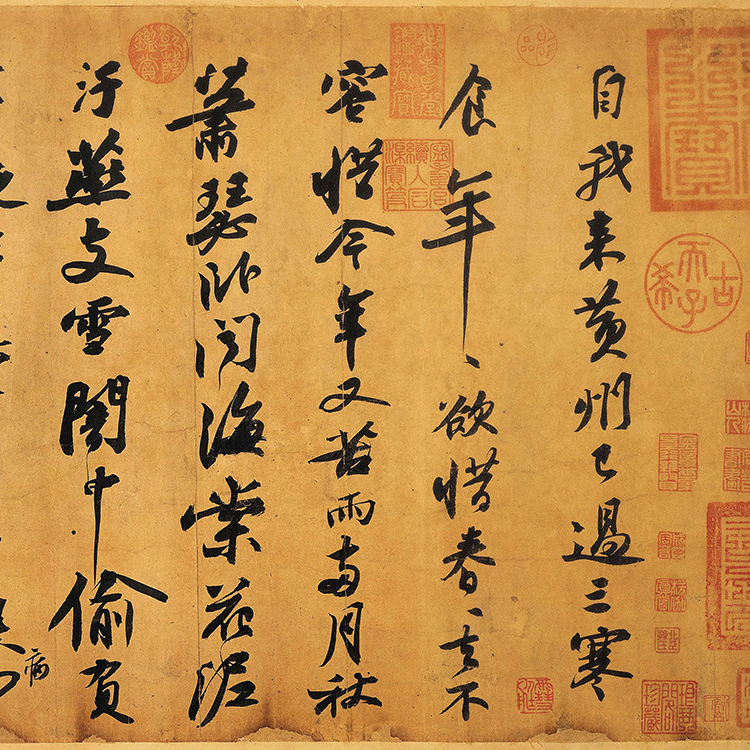 自我来黄州已過三寒
食年〻欲惜春〻去不
容惜今年又苦雨兩月秋
蕭瑟卧聞海棠花泥
汙燕支雪闇中偷負
病
古希天子
乾隆鑑賞